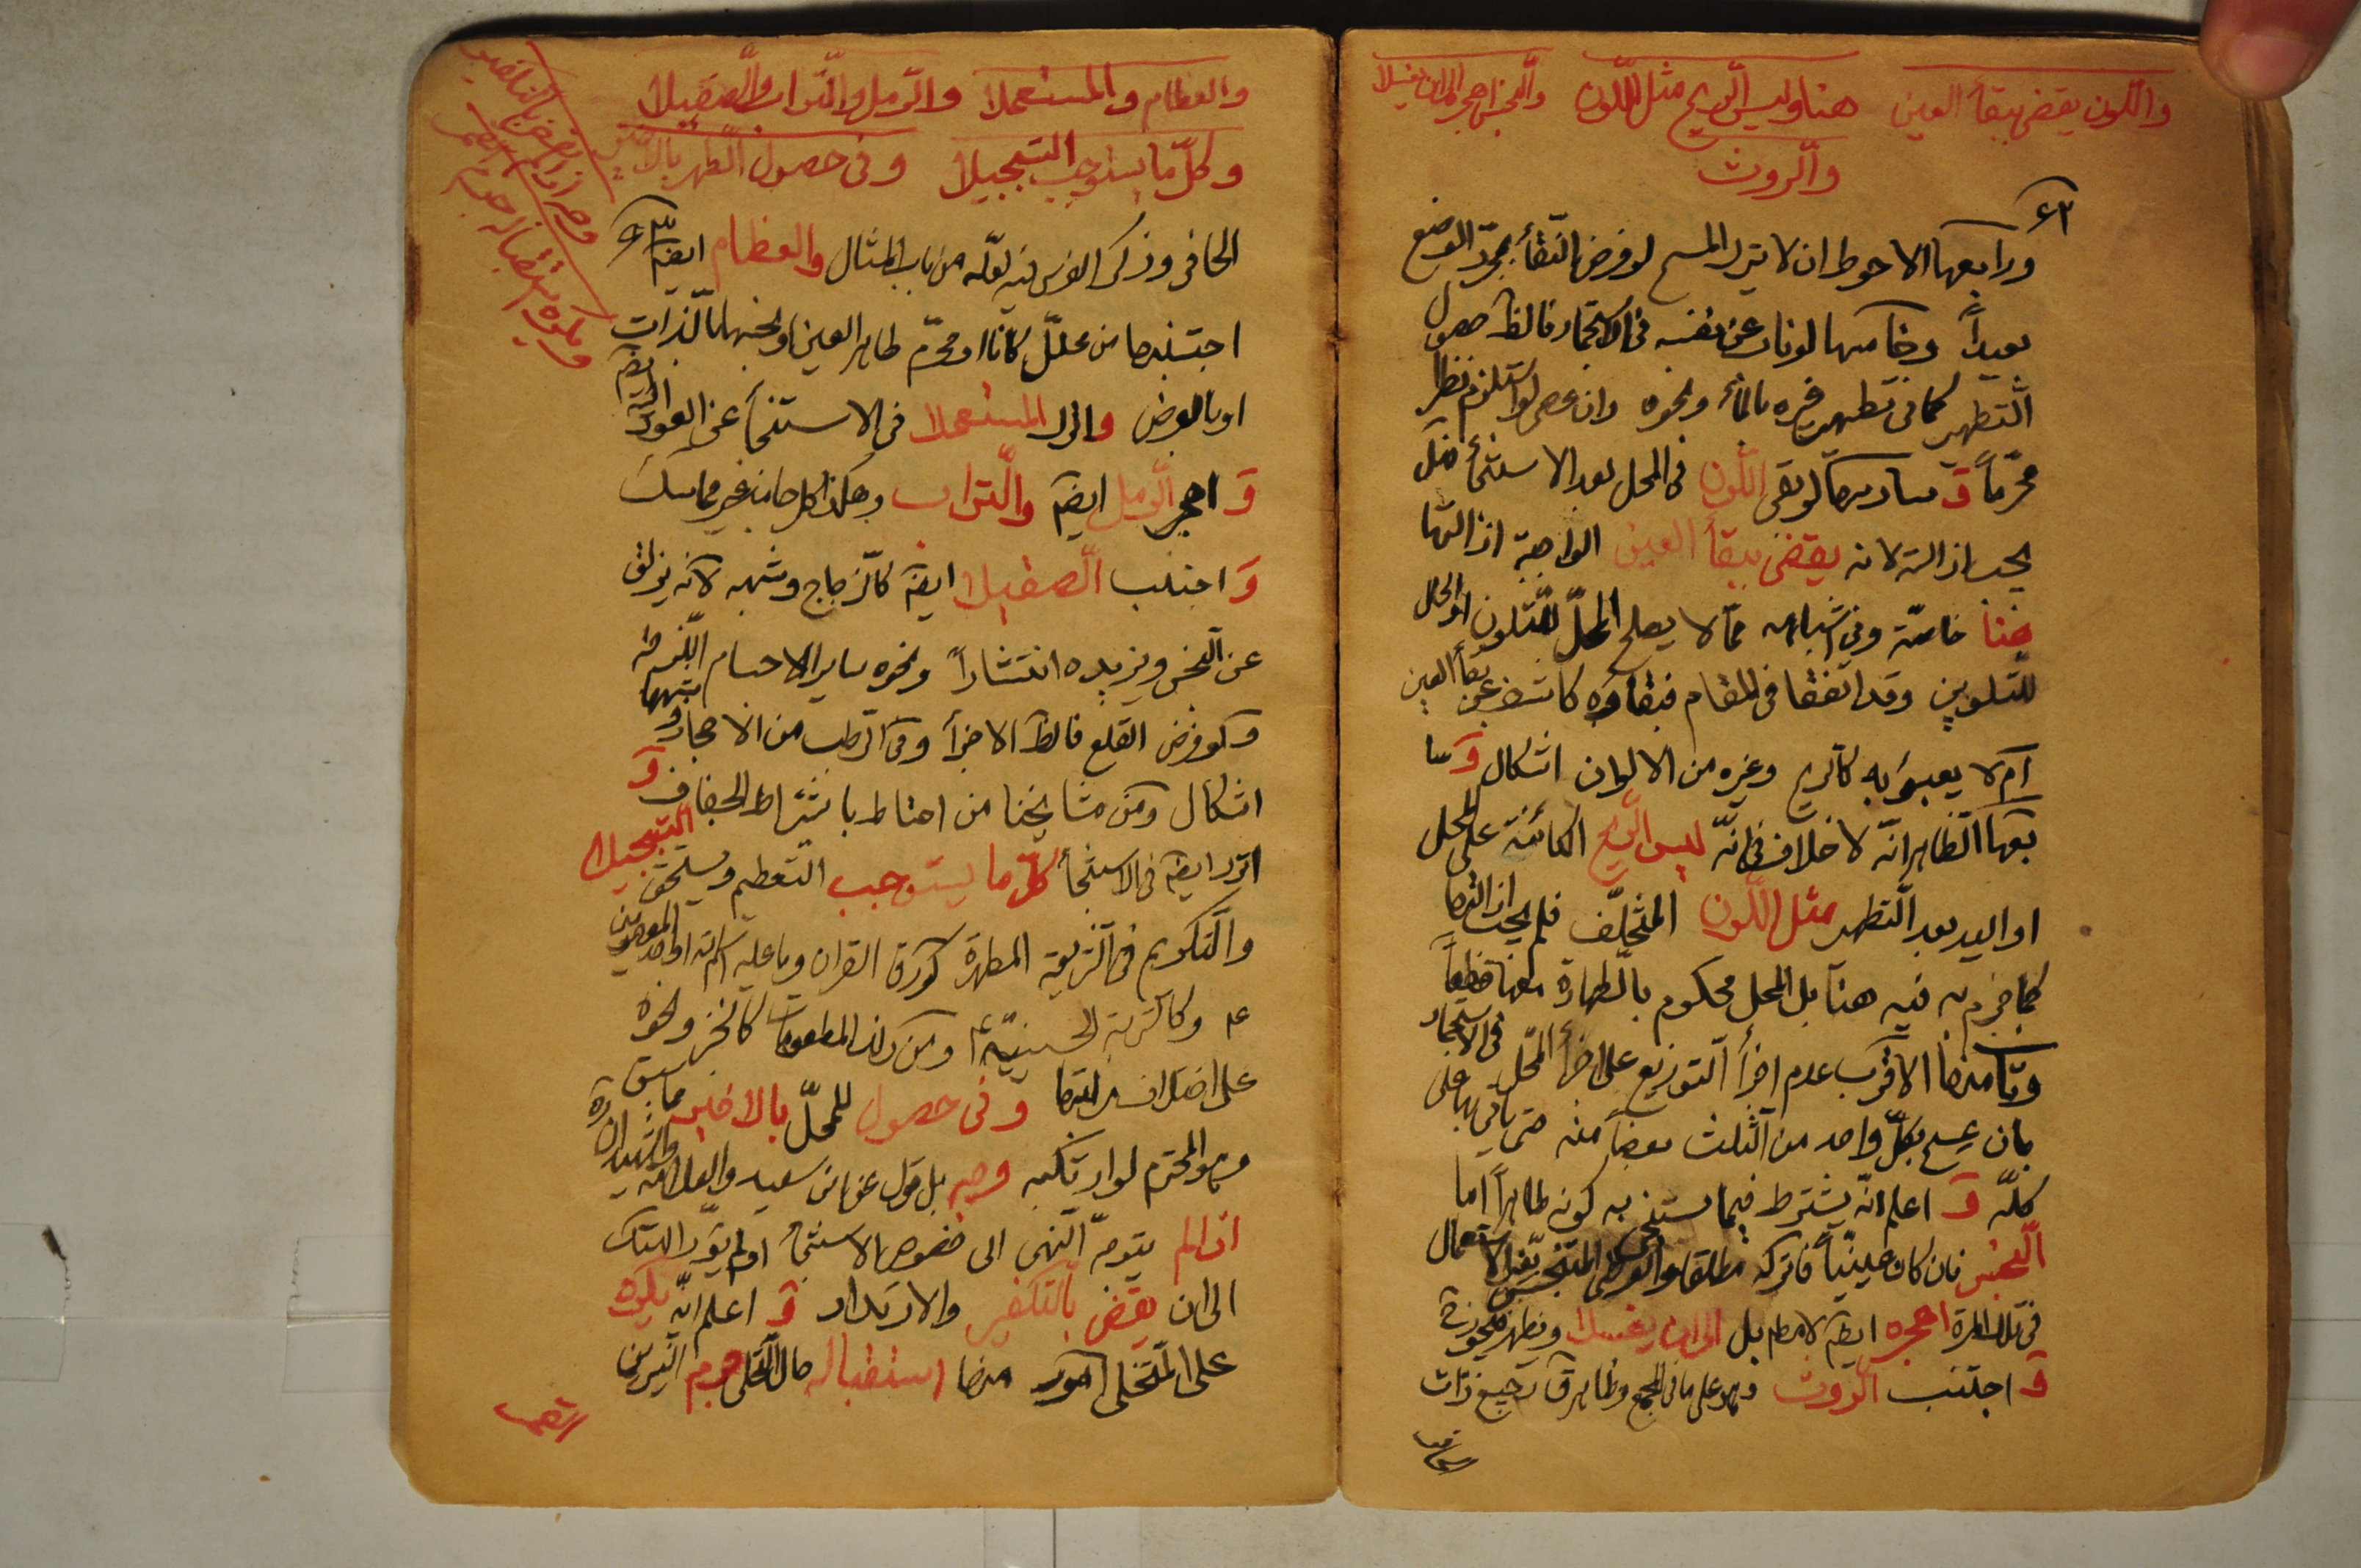 واللّون يقضي ببقاء العين هنا وليس الريح مثل اللّون والنجس اهجره الى ان يغسلا
والرّوث
٤٢
ورابعها الاحوط ان لا يترك المسح لو فرض النّقاء بمجرّد الوضع
بعيداً وخامسها لو ناب عن نفسه في الاستجمار فالظ حصول
التّطهير كما في تطهير غيره بالماء ونحوه وان عصى لو استلزم نظراً
محرّماً وَ سادسها لو بقى اللّون في المحل بعد الاستنجاء فهل
يجب ازالته لانه يقضى ببقاء العين الواجبة ازالتها
هنا خاصّة وفى اشباهه ممّا لا يصلح المحلّ للتّلون او الحال
للتّلوين وقد اتفقا في المقام فبقاؤه كاشف عن بقاء العين
ام لا يعبؤ به كالريح وغيره من الالوان اشكال وَ سا
بعها الظّاهر انّه لا خلاف في انّه ليس الرّيح الكائنة على المحل
او اليد بعد التّطهير مثل اللّون المتخلّف فلم يجب ازالتها
كما جزم به فيه هنا بل المحل محكوم بالطهارة معها قطعاً
وثامنها الاقرب عدم اجزاء التّوزيع على اجزاء المحّل في الاستجمار
بان يمسح بكلّ واحد من الثلث بعضاً منه حتى ياتي بها على
كلّه وَ اعلم انّه يشترط فيما يستنجى به كونه طاهراً اما
النّجس فان كان عينيّاً فاتركه مطلقا والعرضى المتنجس قبل الاستعمال
في تلك المرة اهجره ايضَ لا مطلقا بل الى ان يغسلا ويطهر فيجوز
وَ اجتنب الرّوث وهو على ما في المجمع رجيع ذوات
الحافر
والعظام والمستعملا والرّمل والتّراب والصّقيلا
وكلّ ما يستوجب التّبجيلا وفى حصول الطّهر بالاخير
وجه اذا لم يقض بالتكفير
ويكره استقباله جرم القمر
الحافر وذكر الفرس فيه لعلّه من باب المثال والعظام ايضَ
اجتنبها من محلّل كانا او محرّم طاهر العين او نجسها بالذات
او بالعرض واترك المستعملا في الاستنجاء عن العود اليه ايضَ
وَ اهجر الرّمل ايضَ والتّراب وهكذا كل جاف غير متماسك
وَ اجتنب الصّقيلا ايضَ كالزجاج وشبهه لانه يزلق
عن النجس ويزيده انتشاراً ونحوه ساير الاجسام اللّزجة
ولو فرض القلع فالظ الاجزاء وفى الرّطب من الاحجار وشبهها
اشكال ومن مشايخنا من احتاط باشتراط الجفاف وَ
اترك ايضَ في الاستنجاء كلّ ما يستوجب التعظيم ويستحق التّبجيلا
والتّكريم في الشّريعة المطهرة كورق القران وما عليه اسم الله او احد المعصومين
ع وكالتربة الحسينيّة ومن ذلك المطعومات كالخبز ونحوه
على اختلاف مراتبها وفى حصول للمحلّ بالاخير مما سبق
وهو المحترم لو ارتكبه وجه بل قول عن ابن سعيد والعلامة والشهيد
اذا لم يتوجّه النّهى الى خصوص الاستنجاء او لم يؤدّ الهتك
الى ان يقض بالتكفير والارتداد وَ اعلم انّه يكره
على المتخلى امور منها استقباله حال التّخلى جرم النّيرين
القمر